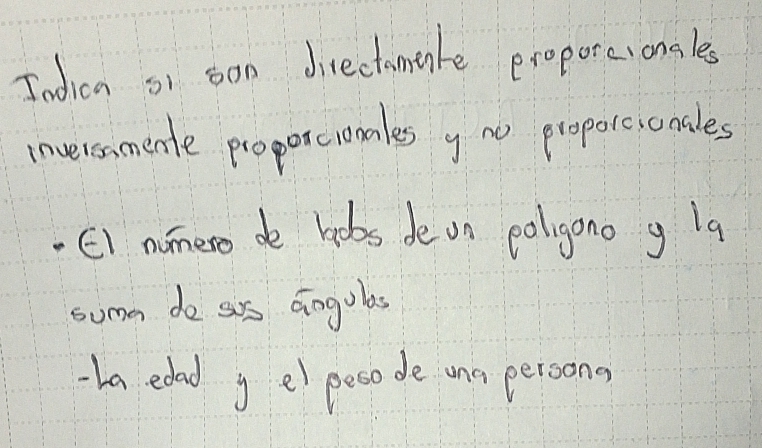 Indica si son directamente proporcionales
inversamente proporcionales y no proporcionales
- El número de lados de un poligono y la
suma de sus ángulos
- La edad y el peso de una persona